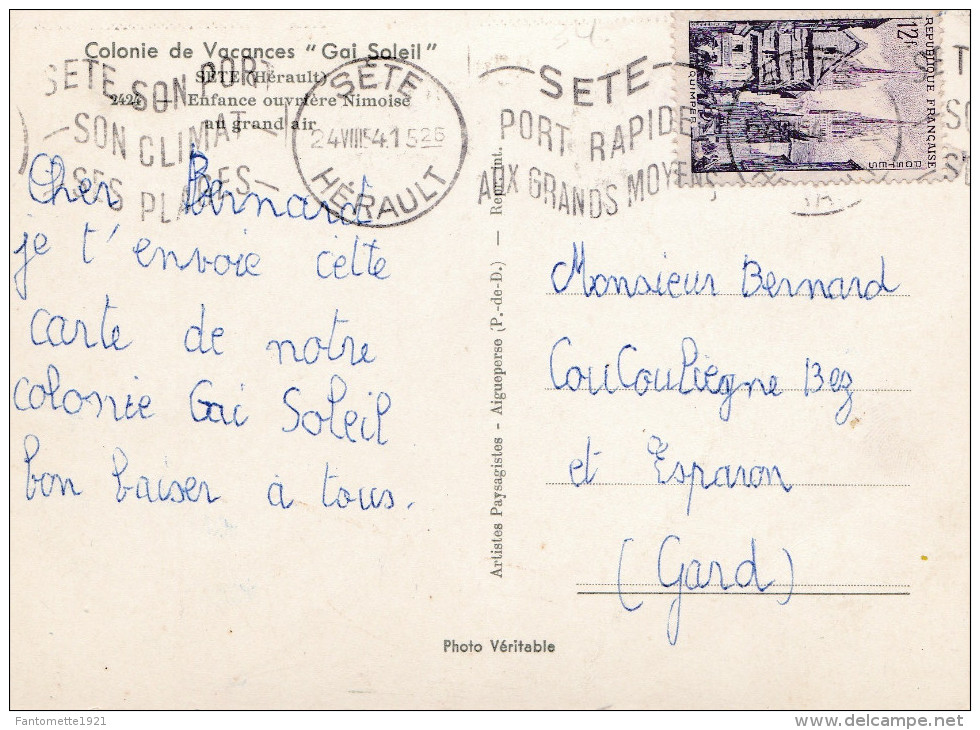 Colonie de Vacances "Gai Soleil"
SÈTE (Hérault)
2424 — Enfance ouvrière Nimoise
au grand air
SETE SON PORT
SON CLIMAT
SES PLAGES
SÈTE
24 VIII 54.15
HÉRAULT
SETE
PORT RAPIDE
AUX GRANDS MOYENS
12f
REPUBLIQUE FRANÇAISE
POSTES
QUIMPER
Cher Bernard
je t'envoie cette
carte de notre
colonie Gai Soleil
bon baiser a tous.
Artistes Paysagistes - Aigueperse (P.-de-D.) — Repr. int.
Monsieur Bernard
CouCouLiègne Bez
et Esparon
(Gard)
Photo Véritable
Fantomette1921
www.delcampe.net